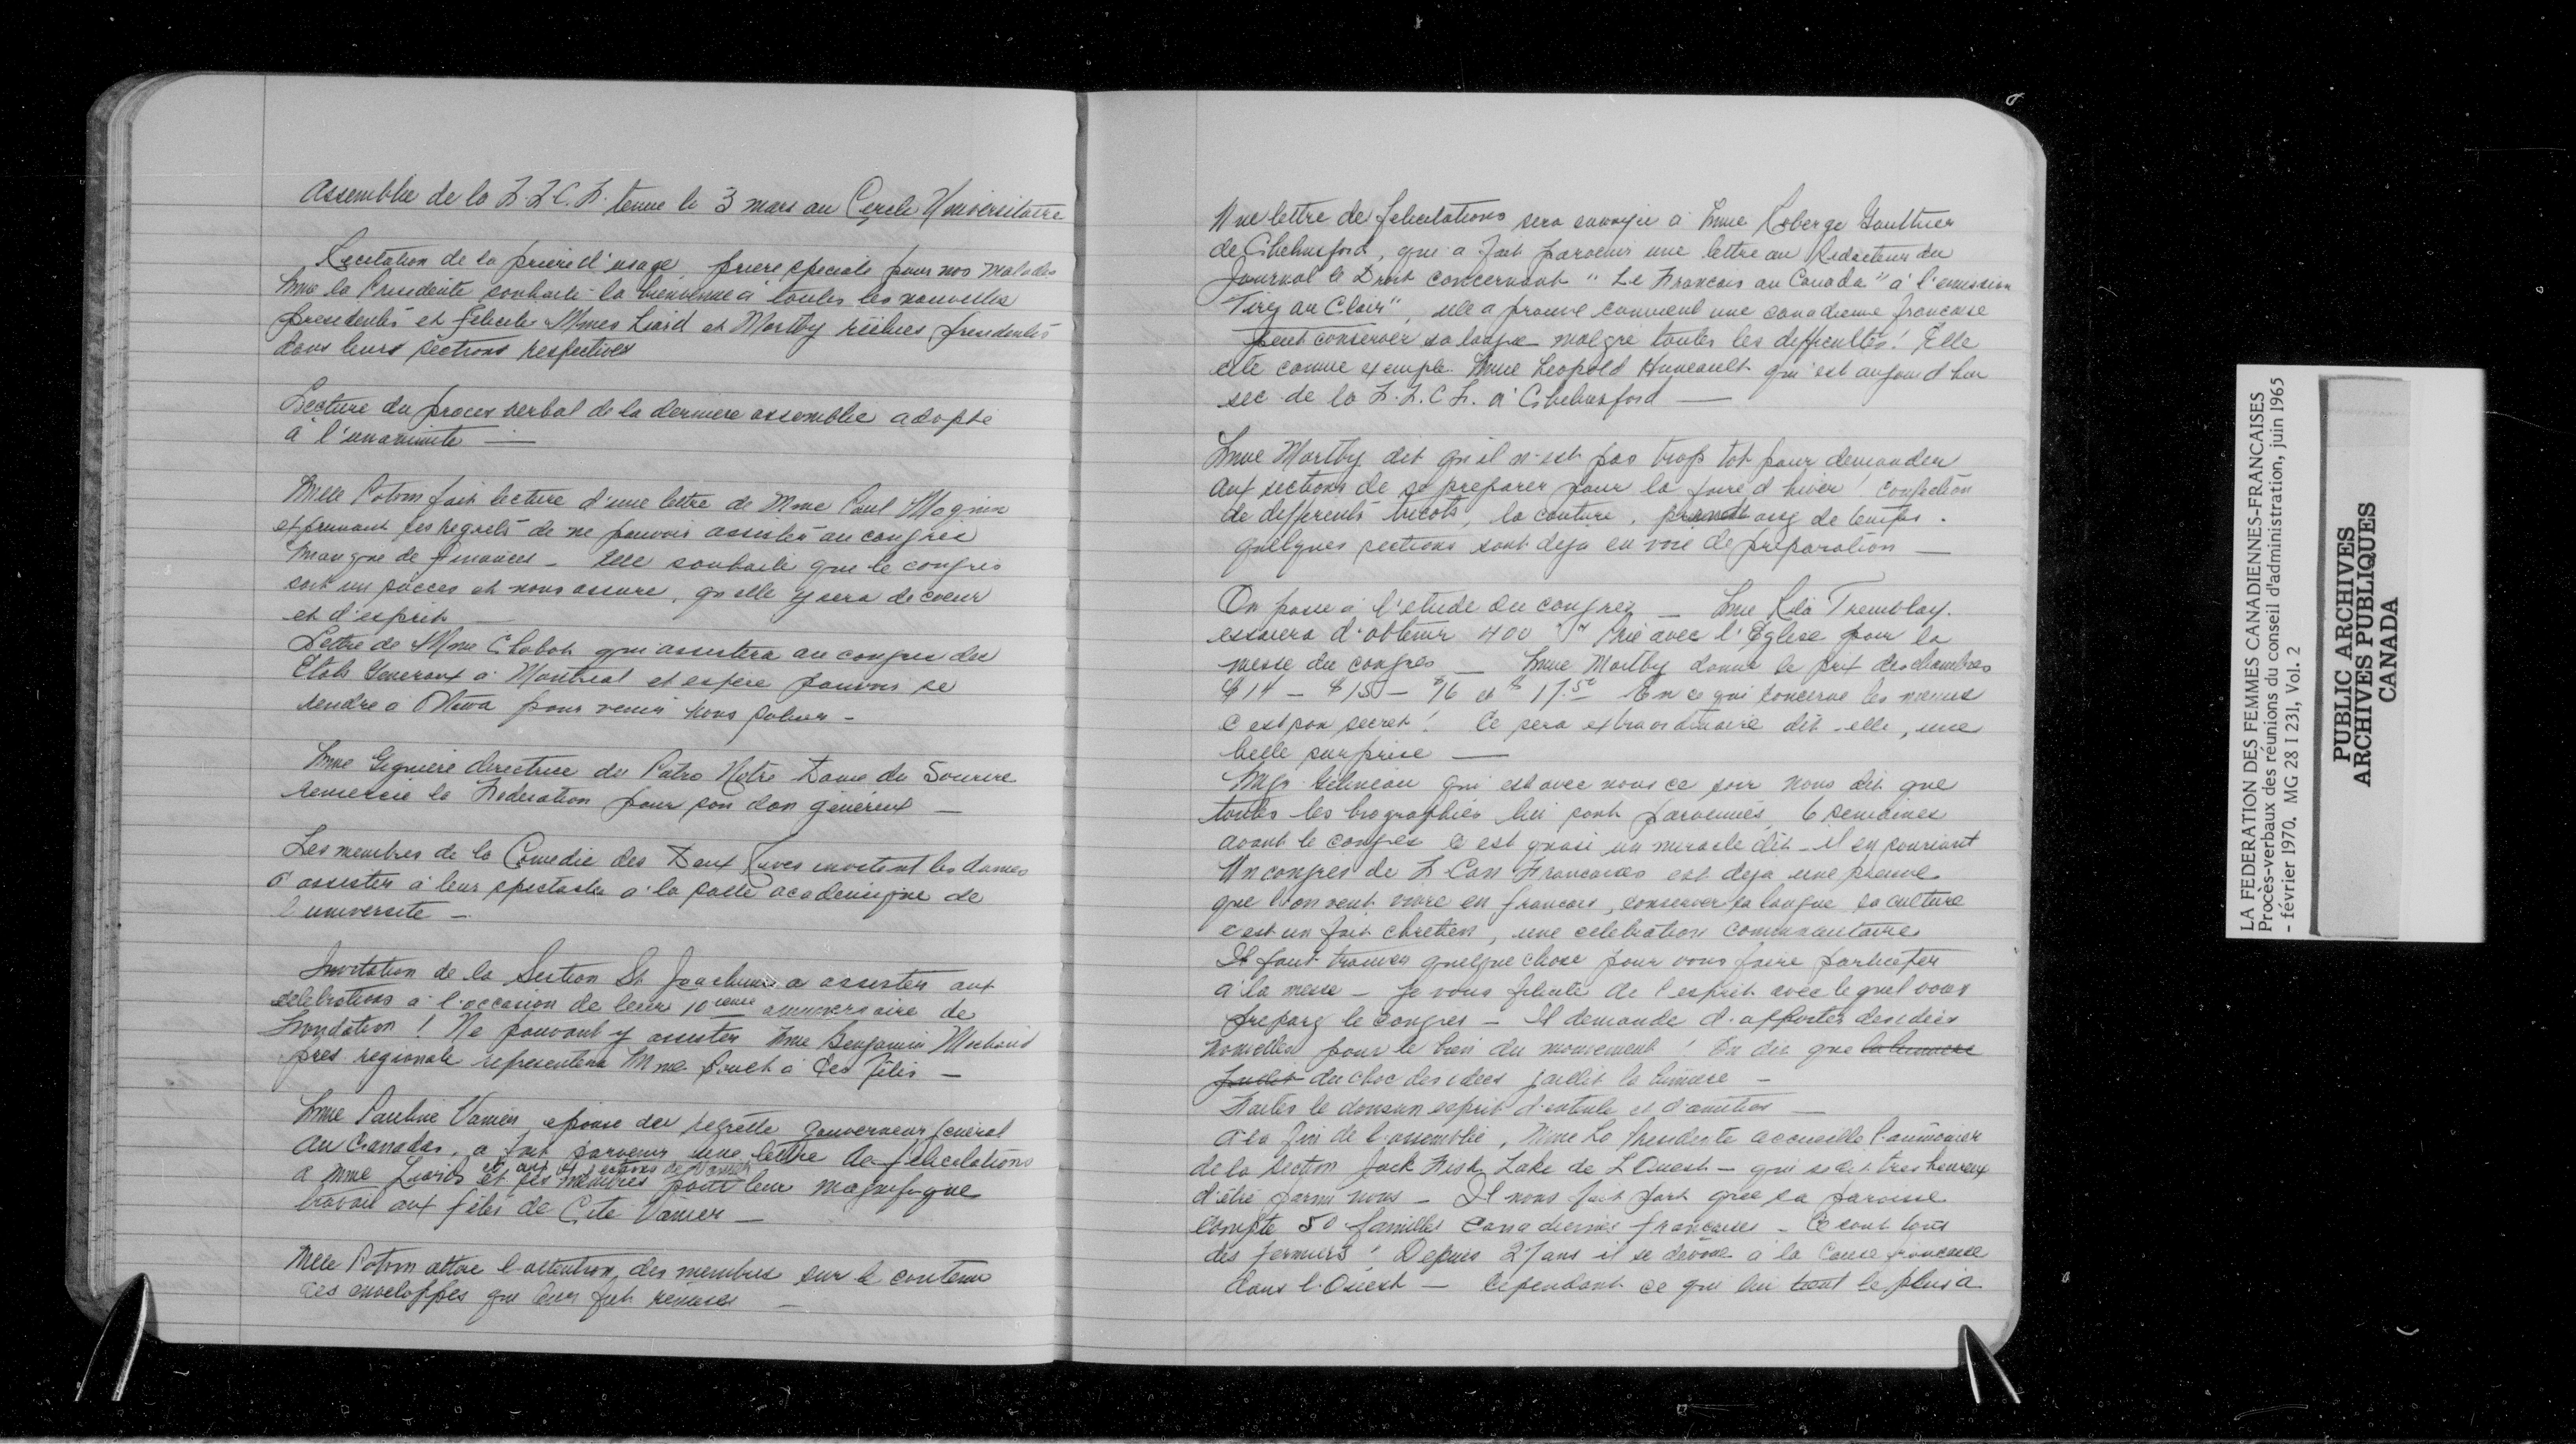 Assemblee de la F.F.C.F. tenue le 3 mars au Cercle Universitaire
Recitation de la priere d'usage, priere speciale pour nos malades
Mme la Presidente souhaite la bienvenue à toutes les nouvelles
presidentes et felicite Mmes Liard et Martby réélues presidentes
dans leurs sections respectives
Lecture du proces verbal de la derniere assemblee adopté
à l'unanimite —
Mlle Potvin fait lecture d'une lettre de Mme Paul Magnin
exprimant ses regrets de ne pouvoir assister au congrès
manque de finances - Elle souhaite que le congrès
soit un succes et nous assure, qu elle y sera de coeur
et d'esprit —
Lettre de Mme Chabot qui assistera au congres des
Etats Generaux à Montreal et espère pouvoir se
rendre à Ottawa pour venir nous saluer -
Mme Gignière directrice du Patro Notre Dame du Sourire
remercie la Federation pour son don généreux —
Les membres de la Comedie des Deux Rives invitent les dames
à assister à leur spectacle à la salle academique de
l'universite -
Invitation de la Section St Joachim a assister aux
celebrations à l'occasion de leur 10ieme anniversaire de
Fondation ! Ne pouvant y assister Mme Benjamin Michaud
pres regionale representera Mme à ces fêtes -
Mme Pauline Vanier, epouse du regretté gouverneur général
du Canada, a fait parvenir une lettre de félicitations
a Mme et ses membres pour leur magnifique
et aux sections de Vanier
travail aux fêtes de Cite Vanier —
Mlle Potvin attire l'attention des membres sur le contenu
des enveloppes qui leur fut remises —
Une lettre de felicitations sera envoyée à Mme Roberge Gauthier
de Chelmsford, qui a fait parvenir une lettre au Redacteur du
Journal le Droit concernant "Le Francais au Canada" à l'emission
"Tirez au Clair", elle a prouvé comment une canadienne francaise
peut conserver sa langue malgré toutes les difficultés! Elle
cite comme exemple Mme Leopold Huneault qui est aujourd hui
sec de la F.F.C.F. à Chelmsford —
Mme Martby dit qu il n'est pas trop tot pour demander
aux sections de se preparer pour la foire d hiver ! confection
de differents tricots, la couture, de temps.
quelques sections sont deja en voie de préparation —
On passe à l'etude du congres — Mme Rita Tremblay
essaiera d'obtenir 400 Prie avec l'Église pour la
messe du congres — Mme Martby donne le prix des chambres
$14 - $15 - $16 et $17.50 En ce qui concerne les menus
C est son secret ! Ce sera extraordinaire dit-elle, une
belle surprise —
Mgr Gelineau qui est avec nous ce soir nous dit que
toutes les biographies lui sont parvenues, 6 semaines
avant le congrès c est quasi un miracle dit-il en souriant
Un congres de F Can Francaises est deja une preuve
que l'on veut vivre en francais, conserver sa langue sa culture
c est un fait chretien, une celebration communautaire
Il faut trouver quelque chose pour vous faire participer
à la messe - Je vous felicite de l esprit avec lequel vous
preparez le congres - Il demande d'apporter des idées
nouvelles pour le bien du mouvement ! On dit que la lumiere
jaillit du choc des idees jaillit la lumière -
Faites le dans un esprit d'entente et d'amitiés —
à la fin de l'assemblée, Mme La Presidente accueille l'aumônier
de la section Jack Fish Lake de L'Ouest - qui se dit tres heureux
d'être parmi nous - Il nous fait part que sa paroisse
compte 50 familles canadiennes francaises - Ce sont tous
des fermiers ! Depuis 27 ans il se dévoue à la cause francaise
dans l'Ouest - Cependant ce qui lui tient le plus à
LA FEDERATION DES FEMMES CANADIENNES-FRANCAISES
Procès-verbaux des réunions du conseil d'administration, juin 1965
- février 1970. MG 28 I 231, Vol. 2
PUBLIC ARCHIVES
ARCHIVES PUBLIQUES
CANADA